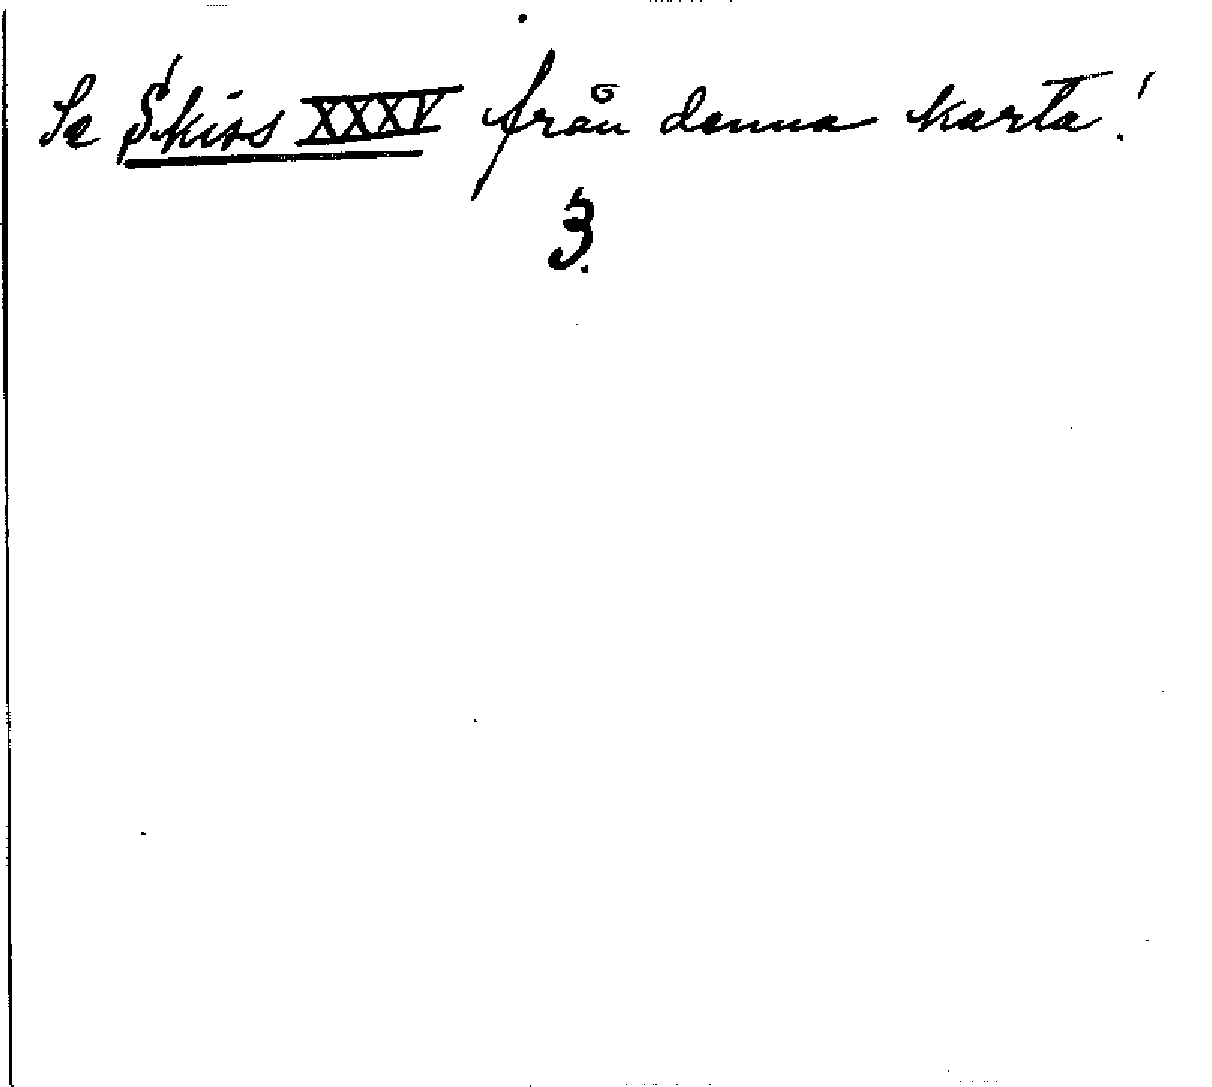 Se Skiss XXXV från denna karta!
3.